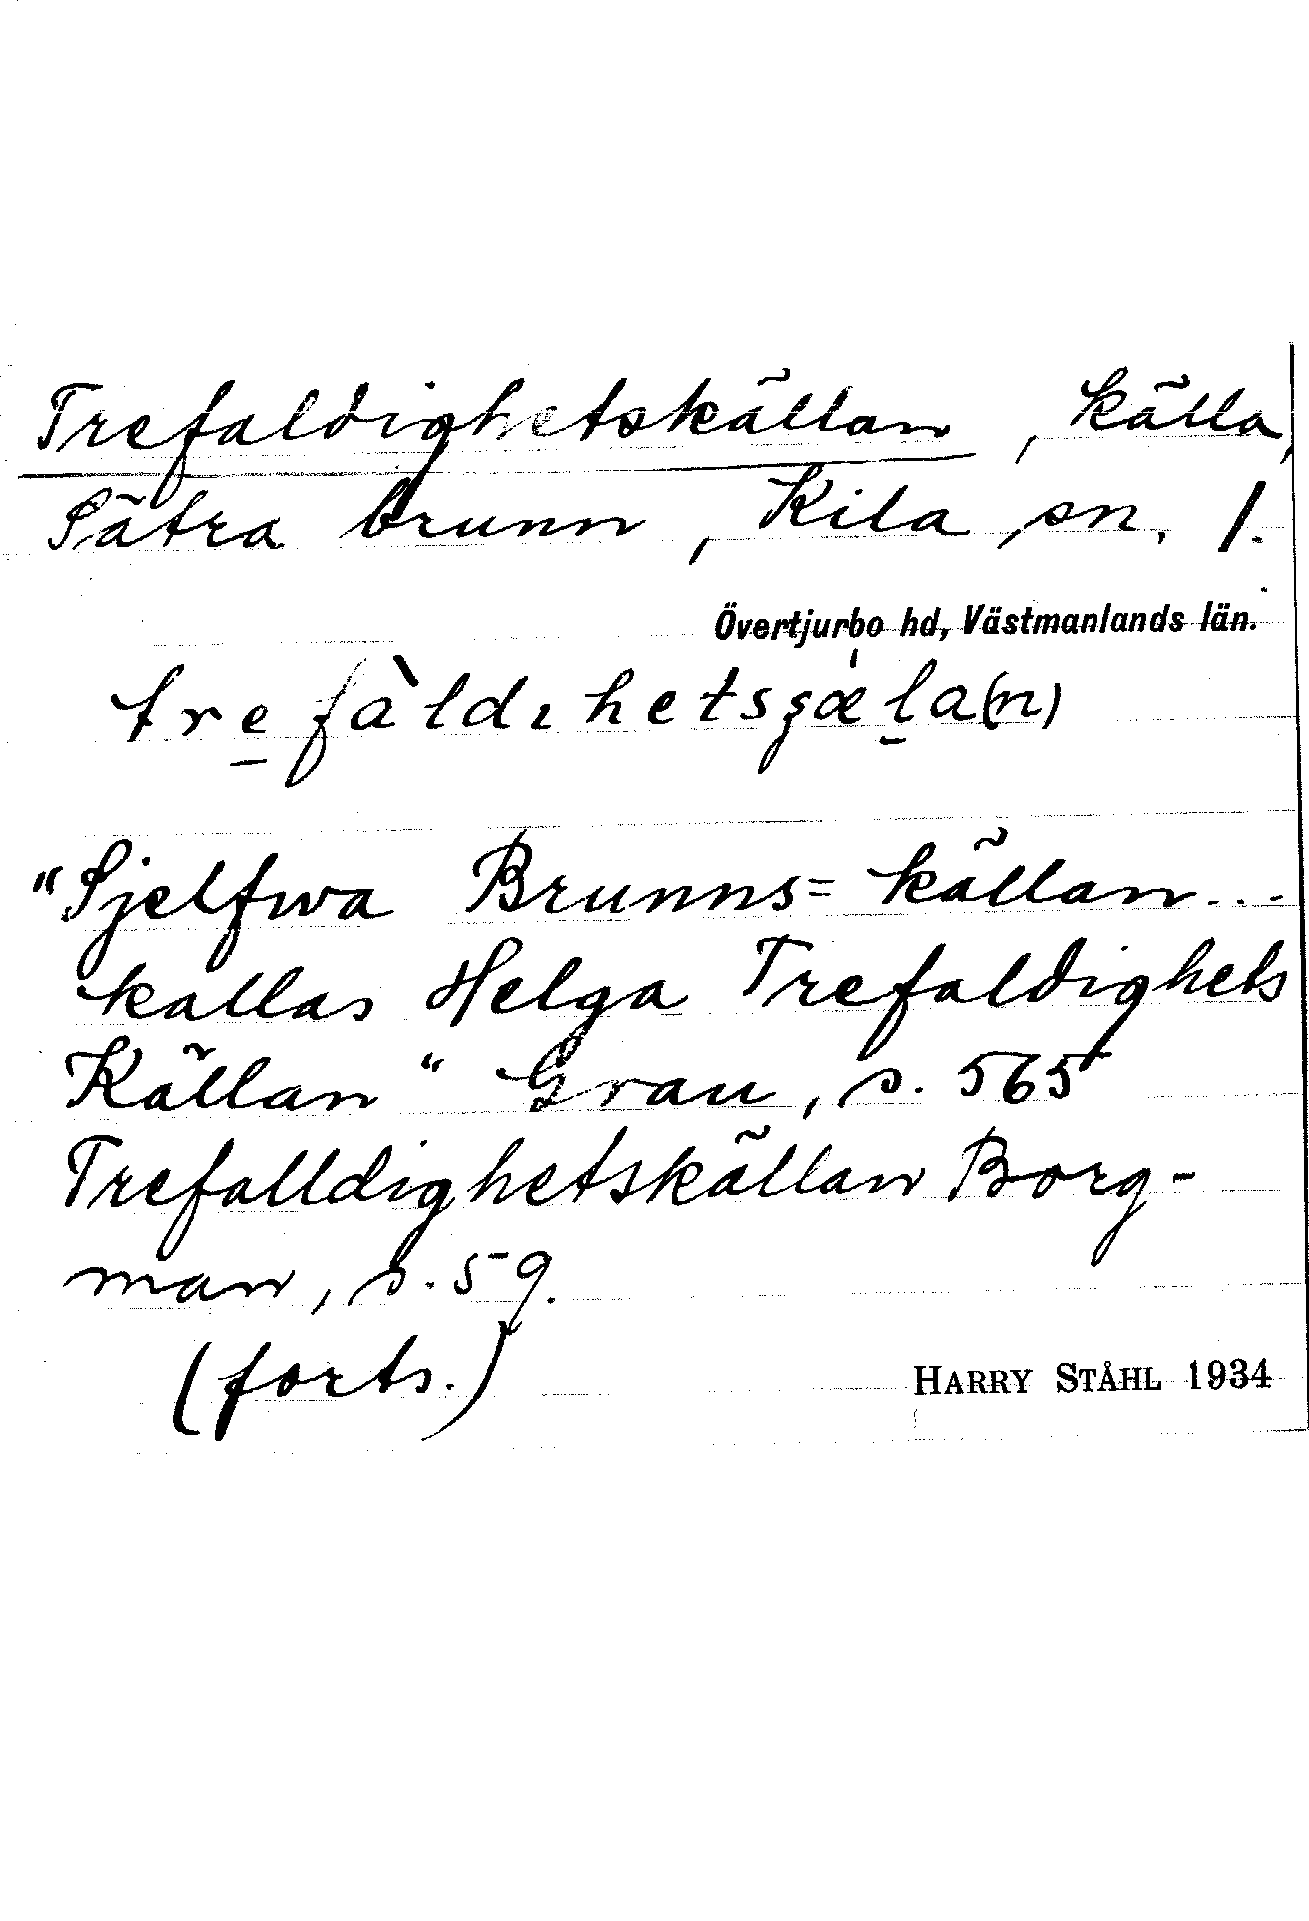 Trefaldighetskällan, källa,
Sätra brunn, Kila sn. 1.
Övertjurbo hd, Västmanlands län.
trefàldıhetsȿæ̍la(n)
"Sjelfwa Brunns= källan...
kallas Helga Trefaldighets
Källan" Grau, s. 565
Trefalldighetskällan Borg-
man, s. 59.
(forts.)
HARRY STÅHL 1934